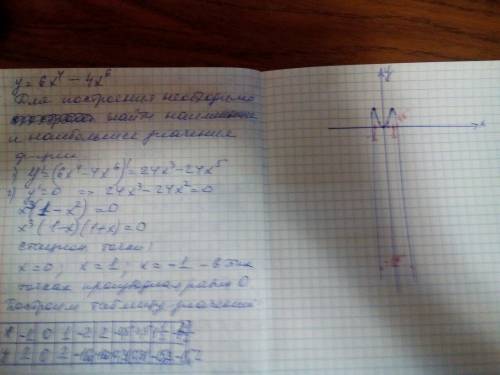 y = 6x⁴ − 4x⁶
Для построения необходимо
найти наименьшие
и наибольшие значения
ф-ции
1) y' = (6x⁴ − 4x⁶)' = 24x³ − 24x⁵
2) y' = 0 => 24x³ − 24x² = 0
x³(1 − x²) = 0
x³(1−x)(1+x) = 0
стацион. точки:
x = 0, x = 1, x = −1 – в этих
точках производная равна 0
Построим таблицу значений
x -1 0 1 -2 2
y 2 0 2
y
x